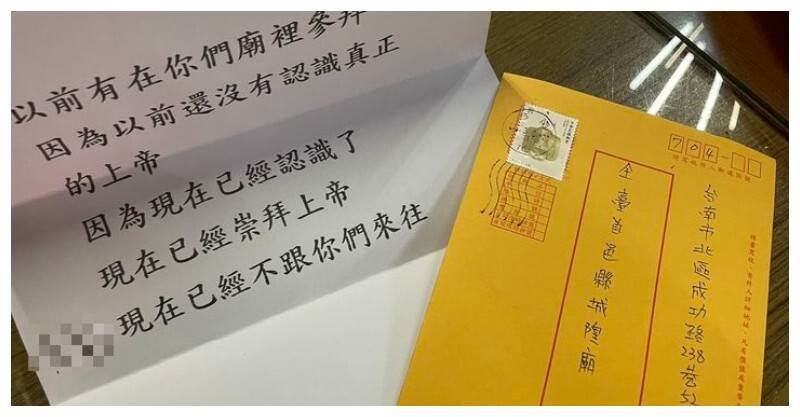 以前有在你們廟裡參拜
因為以前還沒有認識真正
的上帝
因為現在已經認識了
現在已經崇拜上帝
現在已經不跟你們來往
704-
台南市北區成功路238巷52
全臺首邑縣城隍廟